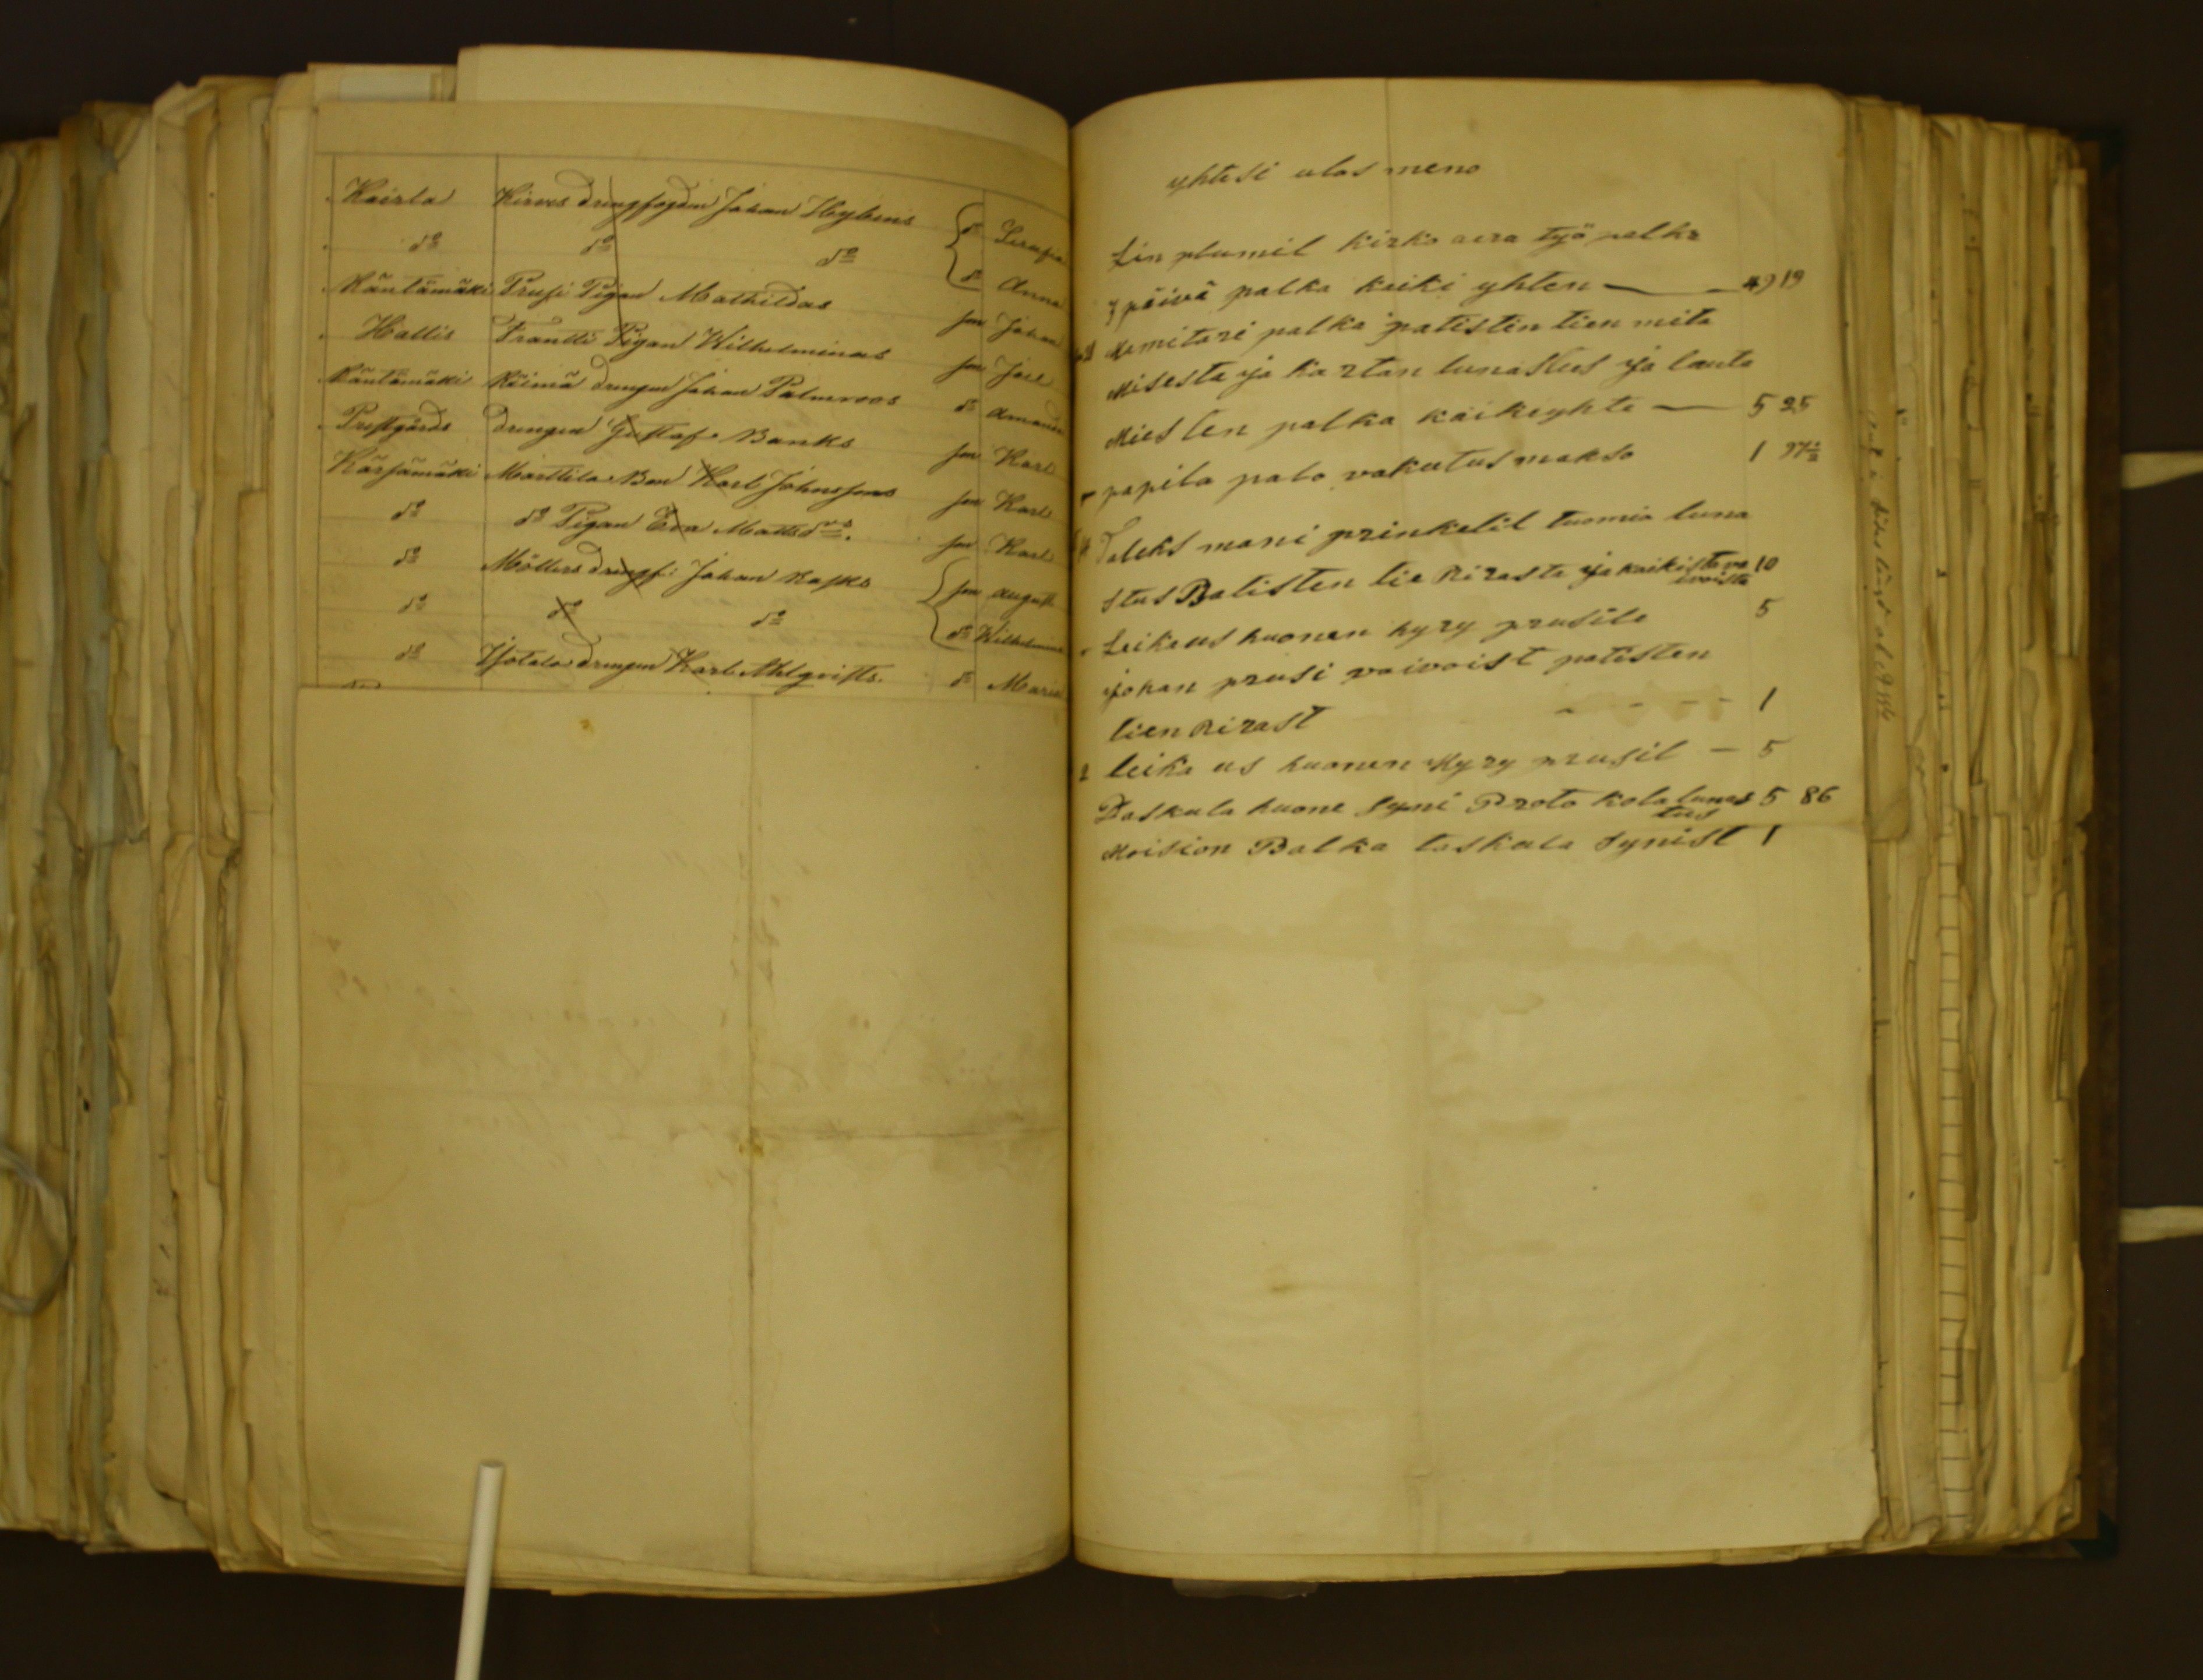 Kairla Kirves drengfogden Johan Heglens do Serafia
do do do do Anna
Räntämäki Prusi Pigan Mathildas son Johan
Hallis Frantti Pigan Wilhelminas son Joel
Räntämäki Räimä drengen Johan Palmroos do Amanda
Prestgårds drengen Gustaf Banks son Karl
Kärsämäki Marttila Bon Karl Johnssons son Karl
do do Pigan Eva Mattsdrs. son Karl
do Möllers drengf: Johan Rasks son August
do do do do Wilhelmina
do Isotalo drengen Karl Ahlqvists do Maria
yhtesi ulos meno
Lin plumil kirko aira työ palka
7 päivä palka kaiki yhten — 49 19
Mamitari palka patistin tien mita
Misesta ja kartan lunastus ja lauta
Miesten palka kaikiyhte — 5 25
papila palo vakutus makso 1 97½
Taleks mani prinkelil tuomio luna
stus Batisten tie Rirasta ja kaikista va 10
ivoista
Leikaus huonen hyry prusile 5
johan prusi vaivoist patisten
tien Rirast - - - - 1
leika us huonen Hyry prusil — 5
Paskula huone syni Protokola lunas 5 86
tus
Moision Balka taskula synist 1